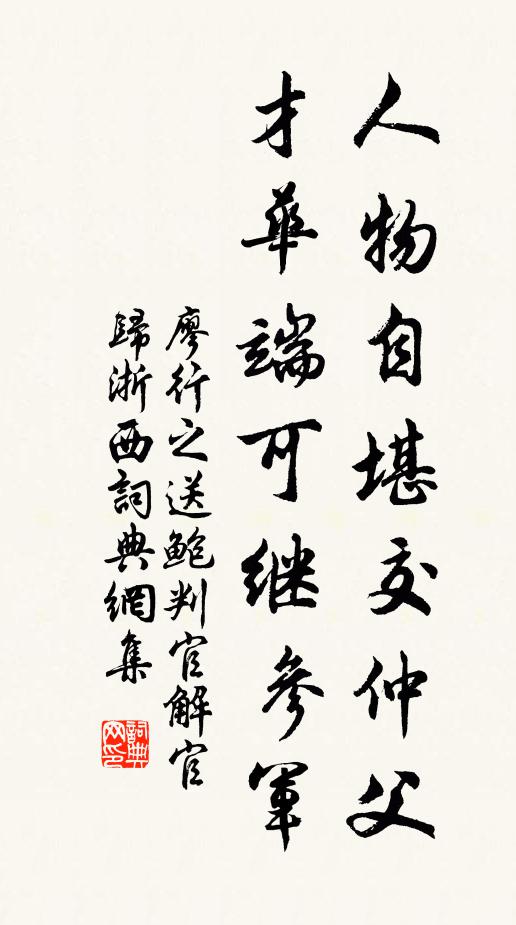 人物自堪交仲父
才華端可继參軍
廖行之送鮑判官解官
歸浙西詞典網集
詞典網印